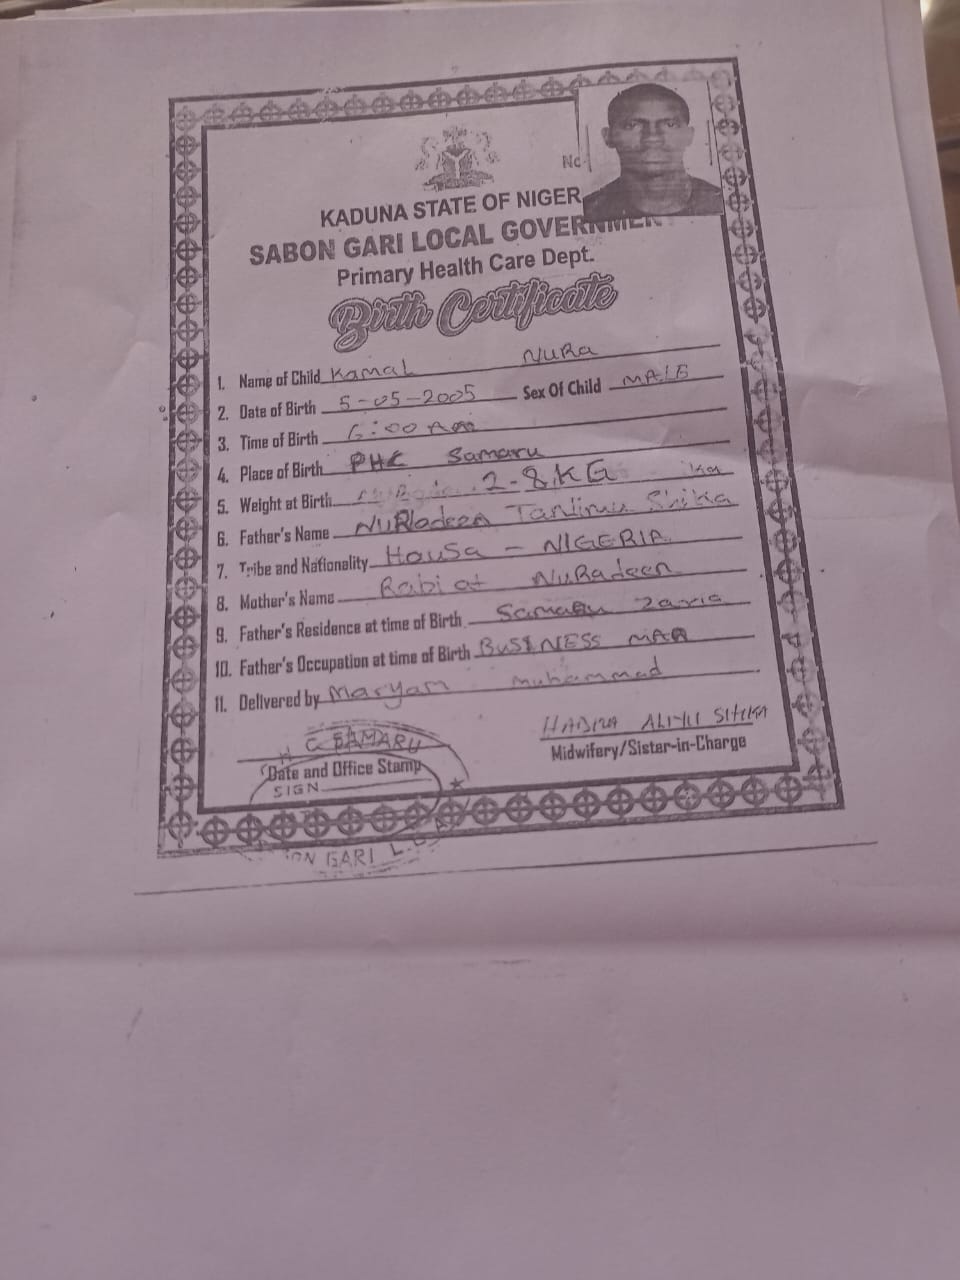 No
KADUNA STATE OF NIGER
SABON GARI LOCAL GOVERNMEN
Primary Health Care Dept.
Birth Certificate
1. Name of Child Kamal NURa
2. Date of Birth 5-05-2005 Sex Of Child MALE
3. Time of Birth 6:00 Am
4. Place of Birth PHC Samaru
5. Weight at Birth 2-8KG
6. Father's Name NURadeen Shika
7. Tribe and Nationality Hausa - NIGERIA
8. Mother's Name Rabiat NuRadeen
9. Father's Residence at time of Birth Samaru Zaria
10. Father's Occupation at time of Birth BUSINESS MAN
11. Delivered by Maryam muhammad
C SAMARU HADIZA ALIYU SHIKA
Date and Office Stamp Midwifery/Sister-in-Charge
SIGN
ON GARI L.G